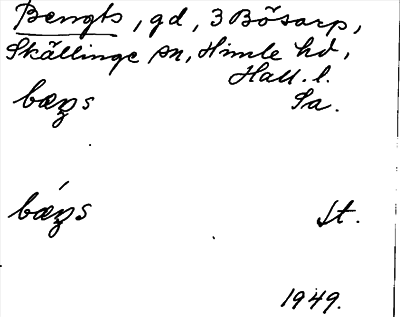 Bengts, gd, 3 Bösarp,
Skällinge sn, Himle hd,
Hall. l.
bæŋs Sa.
bǽŋs St.
1949.